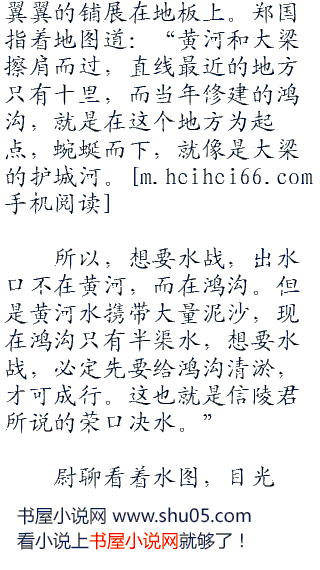 翼翼的铺展在地板上。郑国
指着地图道：“黄河和大梁
擦肩而过，直线最近的地方
只有十里，而当年修建的鸿
沟，就是在这个地方为起
点，蜿蜒而下，就像是大梁
的护城河。[m.hcihci66.com
手机阅读]
所以，想要水战，出水
口不在黄河，而在鸿沟。但
是黄河水携带大量泥沙，现
在鸿沟只有半渠水，想要水
战，必定先要给鸿沟清淤，
才可成行。这也就是信陵君
所说的荣口决水。”
尉聊看着水图，目光
书屋小说网 www.shu05.com
看小说上书屋小说网就够了！